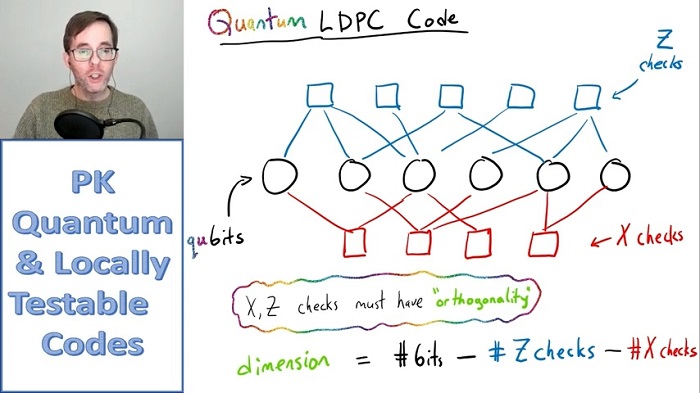 Quantum LDPC Code
Z
checks
PK
Quantum
& Locally
Testable
Codes
qubits
X checks
X, Z checks must have "orthogonality"
dimension = #bits - #Z checks - #X checks